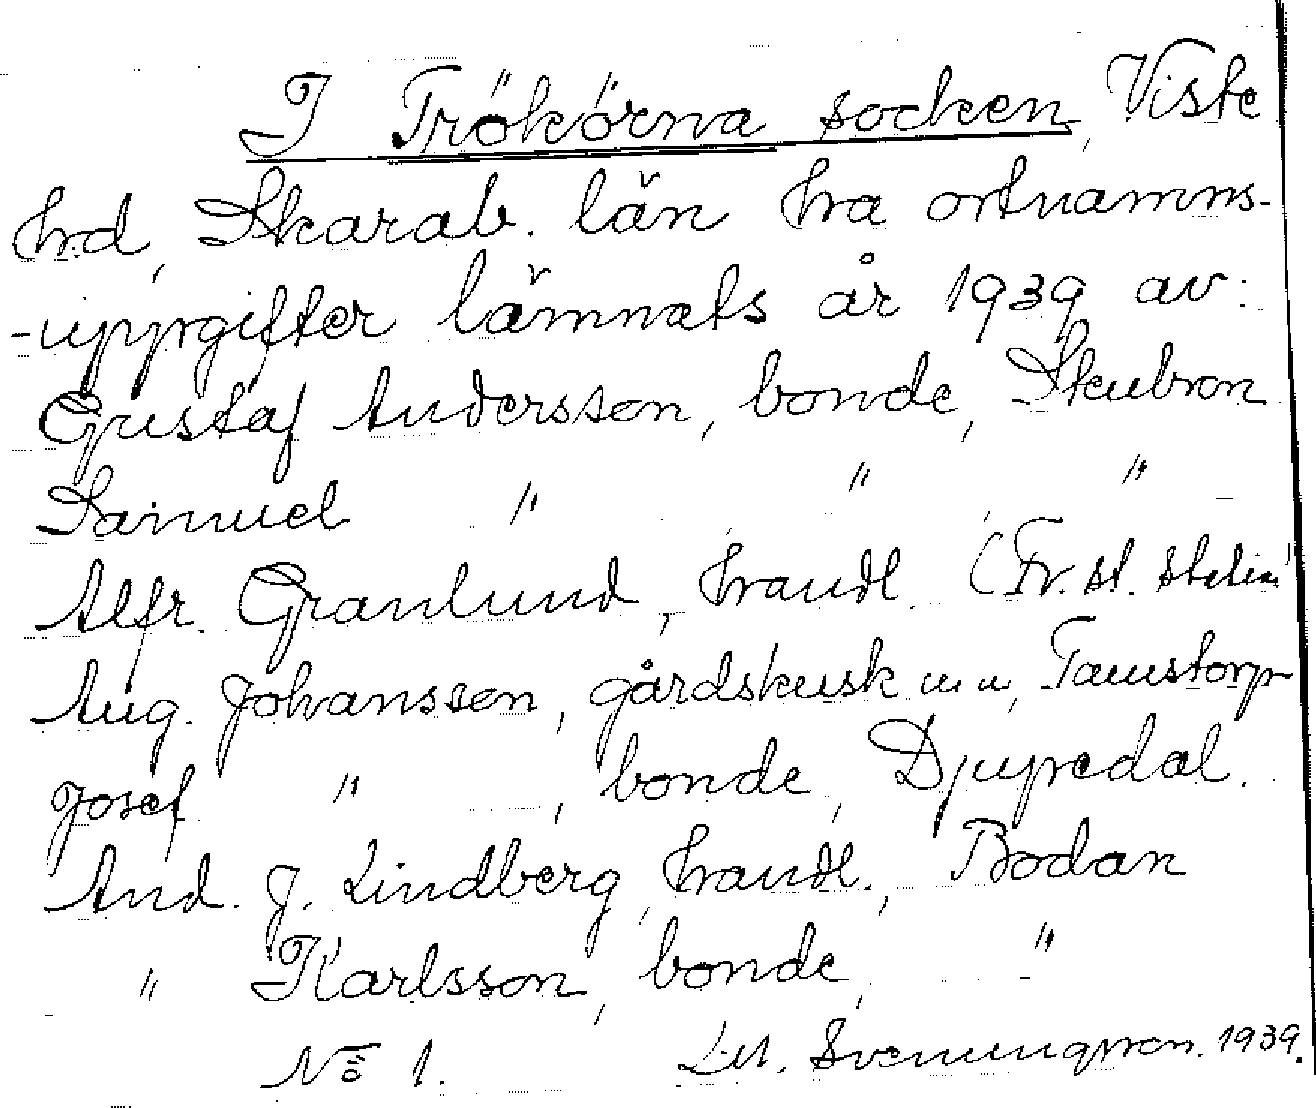 I Trökörna socken, Viste
hrd, Skarab. län ha ortnamns-
-uppgifter lämnats år 1939 av:
Gustaf Andersson, bonde, Skubron
Samuel " " "
Alfr. Granlund, handl. (Tr. st.
Aug. Johansson, gårdskusk m.m, Tamstorp
Josef " , bonde, Djupedal.
And. J. Lindberg, handl., Bodan
" Karlsson, bonde, "
No 1. Svenungsson. 1939.